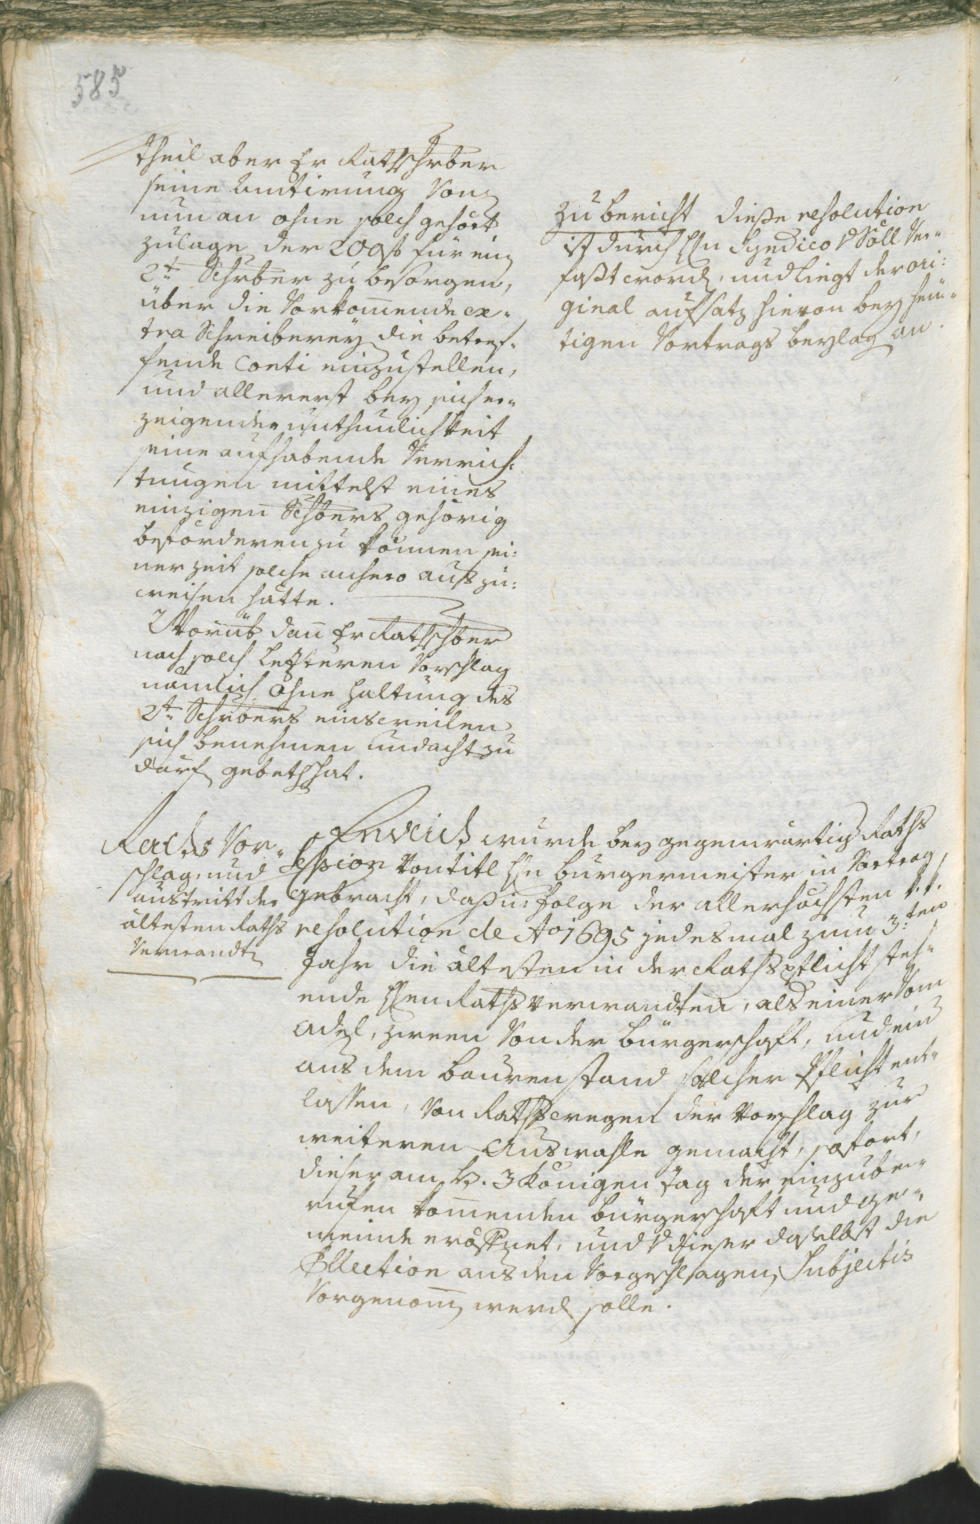 585
theil aber Er Rathschrber
seine Amtirung von
nun an ohne solch gehört
zulage der 200 fl für ein
2t. Schrber zu besorgen,
über die Vorkom̄ende ex-
tra Schreiberey die betref-
fende Conti einzustellen,
und allererst bey sich er-
zeigender unthunlichkeit
seine aufhabende Verrich-
tungen mittelst eines
einzigen Schrbers gehörig
befördern zu können sei-
ner zeit solche anhero auszu-
weisen hätte.
Worüb dan̄ Er Rathschrber
nach solch letzteren Vorschlag
nämlich ohne haltung des
2t. Schrbers einsweilen
sich benehmen und acht zu
darf gebethhat.
zu bericht diese resolution
ist durch Hn Syndico v Söll ver-
faßt word, und liegt der ori-
ginal aufsatz hievon bey heu-
tigen Vortrags beylag an.
Raths Vor-
schlag, und
austritt der
ältesten Raths
Verwandt
Endlich wurde bey gegenwärtig Raths
Session von titl Hn burgermeister in Vortrag
gebracht, daß in folge der allerhöchsten t. t.
resolution de Ao 1695 jedesmal zum 3:ten
Jahr die ältesten in der Rathspflicht steh-
ende Hhen Raths verwandten, als einer Vom
Adel, zween Von der burgerschaft, und ein
aus dem bauren stand solcher Pflicht ent-
lassen, Von Rathswegen der Vorschlag zur
weiteren Auswahle gemacht, sofort,
dieser am H. 3 Königen tag der einzube-
rufen kom̄enden burgerschaft und ge-
meinde eröffnet, und v dieser daselbst die
Ellection aus den Vorgeschlagen Subjectis
Vorgenom̄ werd solle.